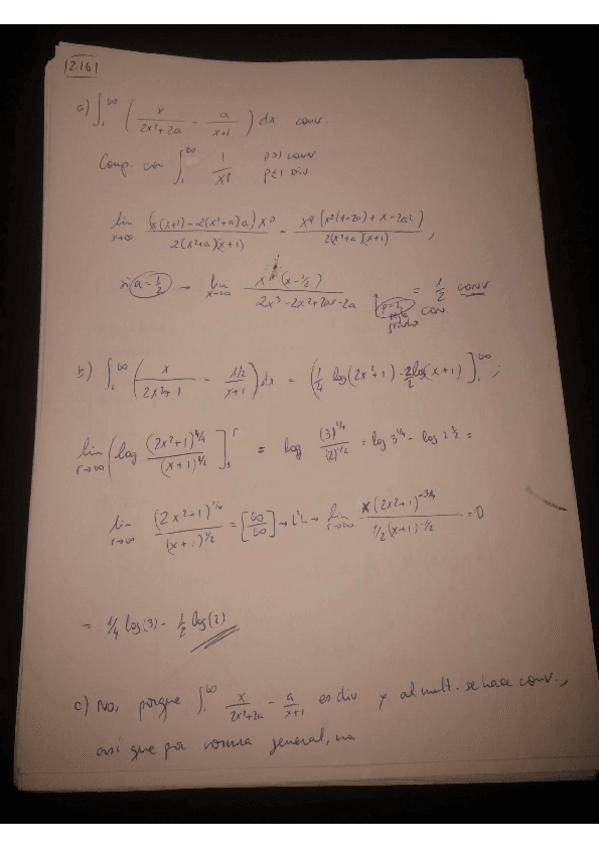 2.16
a) ∫₁^∞ ( x/(2x²+2a) - a/(x+1) ) dx conv.
Comp. con ∫₁^∞ 1/x^p p>1 conv p≤1 div.
lim x→∞ (x(x+1)-2(x²+a)a)x^p / 2(x²+a)(x+1) = x^p(x²(1-2a)+x-2a²) / 2(x²+a)(x+1) ,
si a=1/2 → lim x→∞ (x-1/2) / 2x³-2x²+2ax-2a = 1/2 conv
conv
b) ∫₁^∞ ( x/(2x²+1) - 1/2/(x+1) ) dx = ( 1/4 log(2x²+1) - 1/2 log(x+1) ]₁^∞ ;
lim r→∞ ( log (2x²+1)^1/4 / (x+1)^1/2 ]₁^r = log (3)^1/4 / (2)^1/2 = log 3^1/4 - log 2^1/2 =
lim r→∞ (2x²+1)^1/4 / (x+1)^1/2 = [∞/∞] → L'H → lim r→∞ x(2x²+1)^-3/4 / 1/2(x+1)^-1/2 = 0
= 1/4 log(3) - 1/2 log(2)
c) No, porque ∫₁^∞ x/(2x²+2a) - a/(x+1) es div y al mult. se hace conv.,
así que por norma general, no